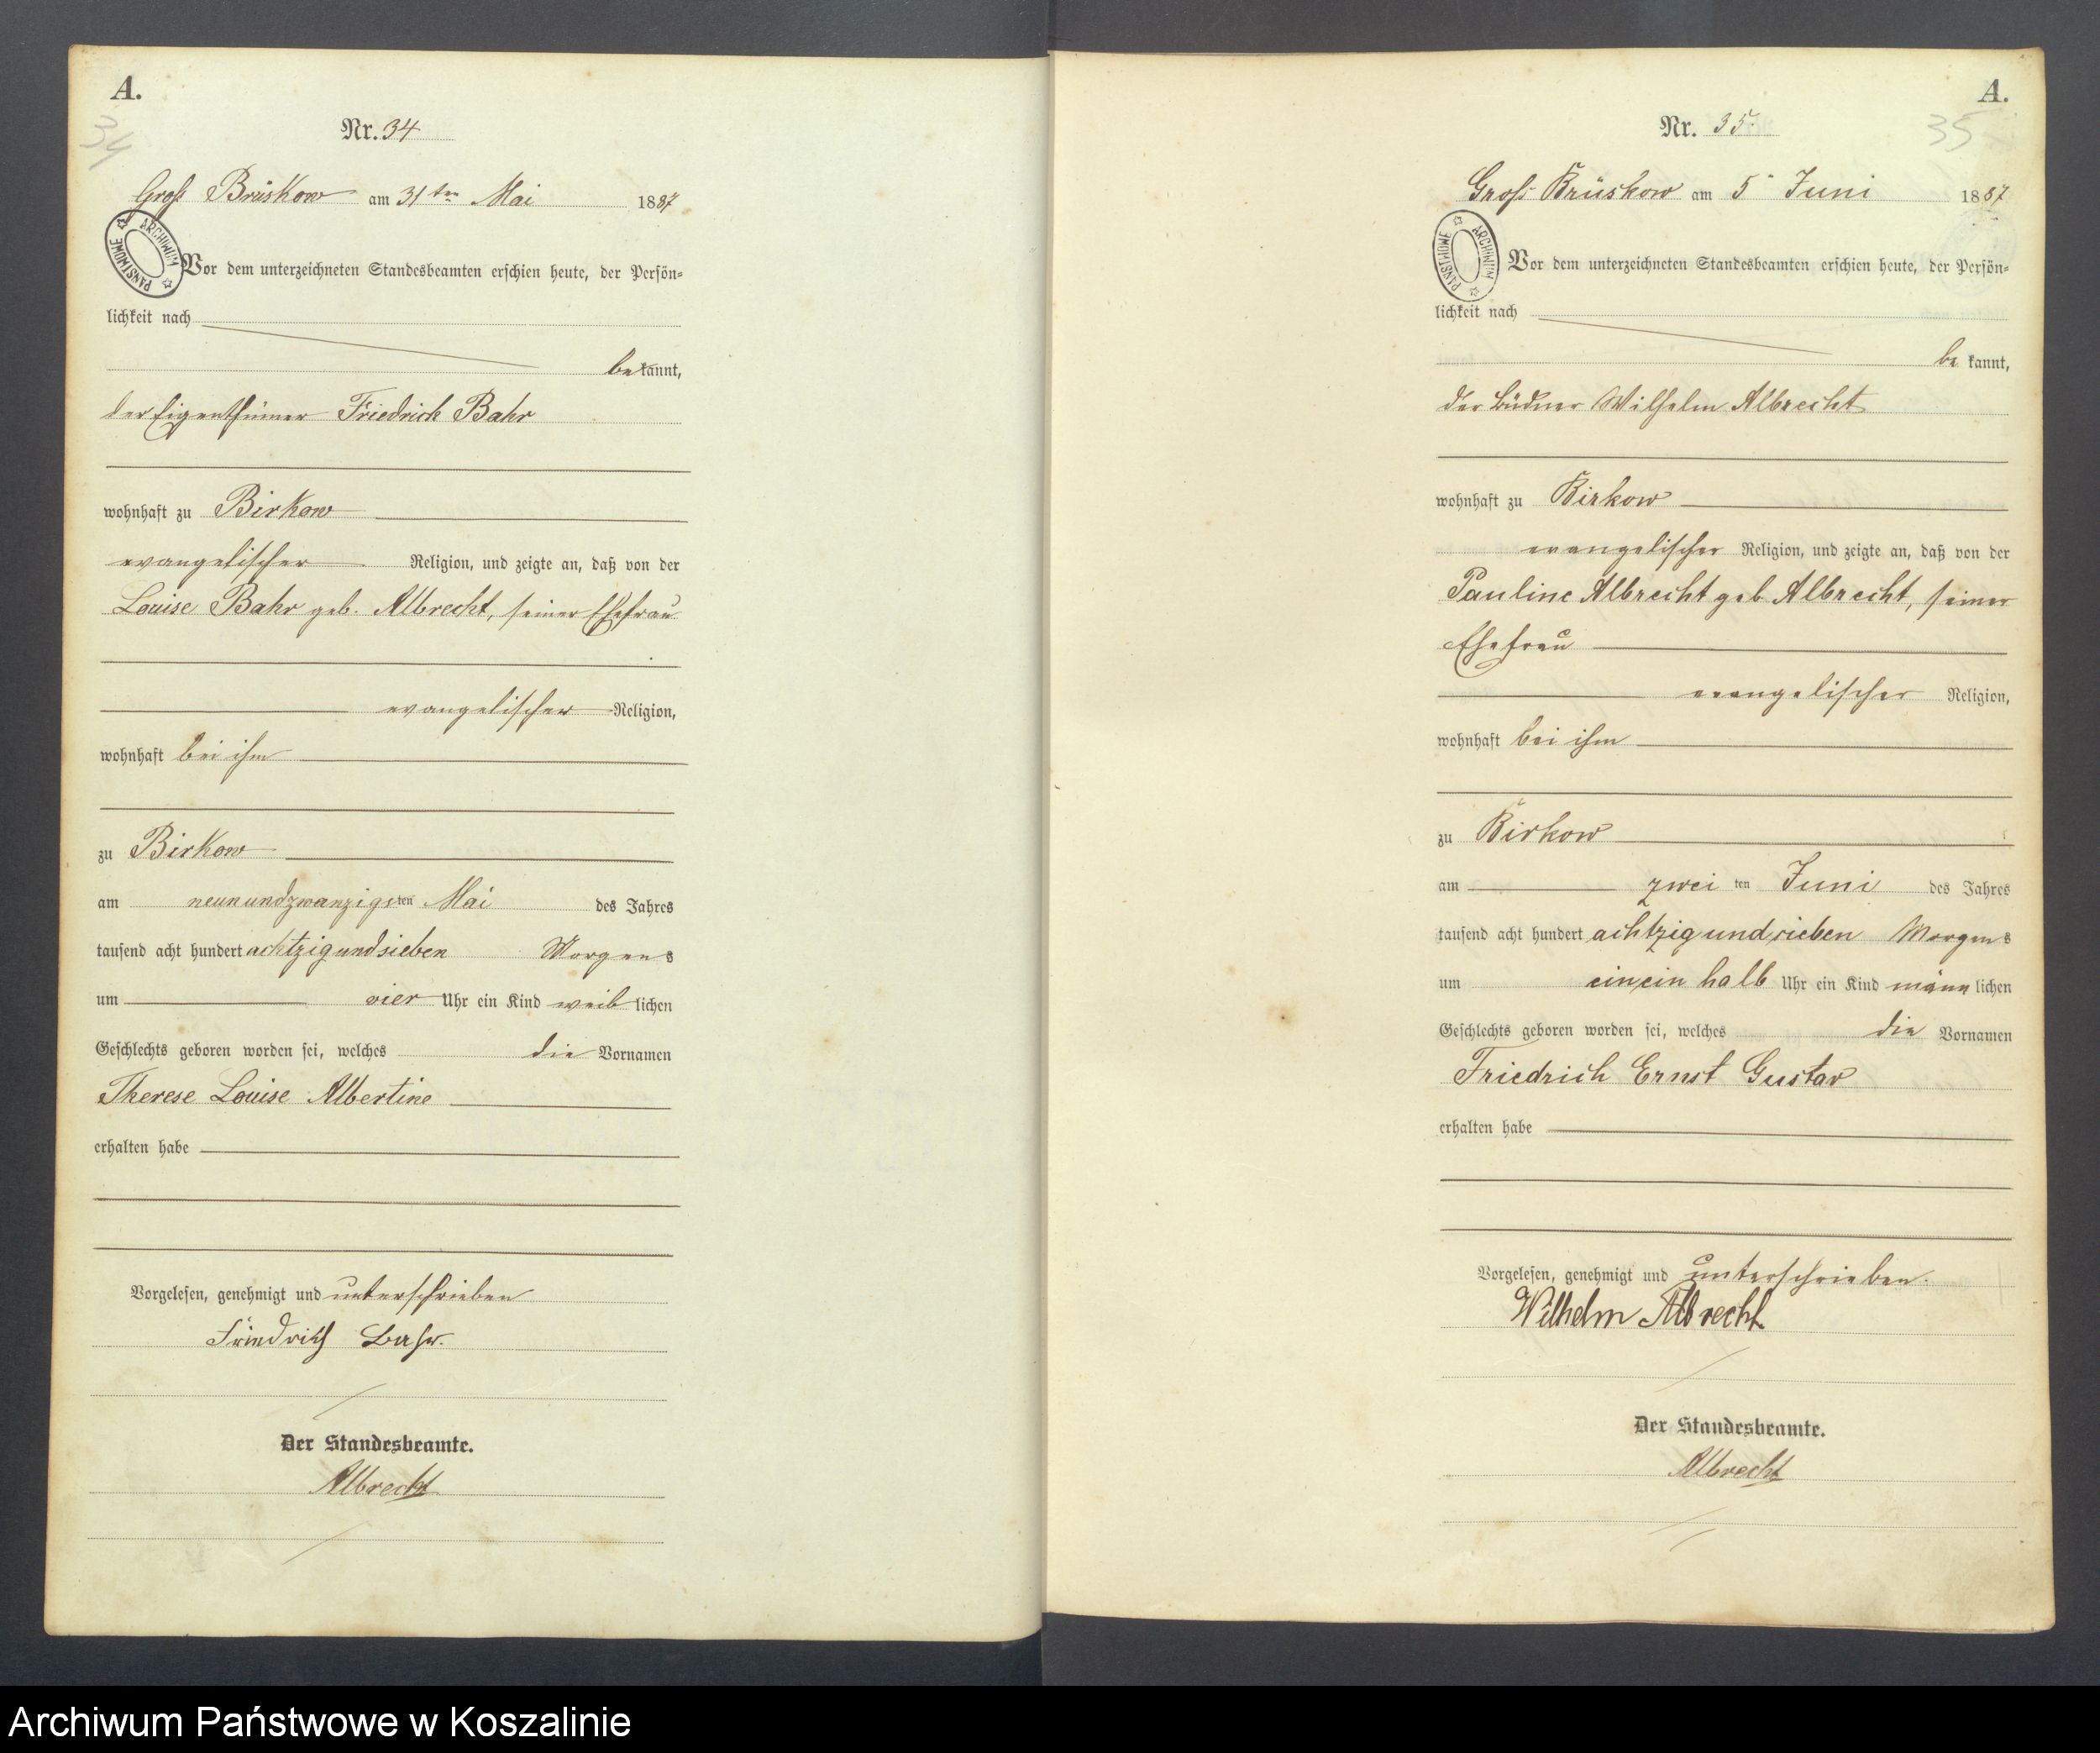 A.
34
Nr. 34
Groß Brüskow am 31ten Mai 1887
ARCHIWUM PAŃSTWOWE
Vor dem unterzeichneten Standesbeamten erschien heute, der Persön-
lichkeit nach
bekannt,
der Eigenthümer Friedrich Bahr
wohnhaft zu Birkow
evangelischer Religion, und zeigte an, daß von der
Louise Bahr geb. Albrecht, seiner Ehefrau
evangelischer Religion,
wohnhaft bei ihm
zu Birkow
am neunundzwanzigsten Mai des Jahres
tausend acht hundert achtzigundsieben Morgens
um vier Uhr ein Kind weiblichen
Geschlechts geboren worden sei, welches die Vornamen
Therese Louise Albertine
erhalten habe
Vorgelesen, genehmigt und unterschrieben
Friedrich Bahr.
Der Standesbeamte.
Albrecht
A.
35
Nr. 35.
Groß Brüskow am 5. Juni 1887
ARCHIWUM PAŃSTWOWE
Vor dem unterzeichneten Standesbeamten erschien heute, der Persön-
lichkeit nach
bekannt,
der Büdner Wilhelm Albrecht
wohnhaft zu Birkow
evangelischer Religion, und zeigte an, daß von der
Pauline Albrecht geb Albrecht, seiner
Ehefrau
evangelischer Religion,
wohnhaft bei ihm
zu Birkow
am zweiten Juni des Jahres
tausend acht hundert achtzigundsieben Morgens
um einein halb Uhr ein Kind männlichen
Geschlechts geboren worden sei, welches die Vornamen
Friedrich Ernst Gustav
erhalten habe
Vorgelesen, genehmigt und unterschrieben.
Wilhelm Albrecht
Der Standesbeamte.
Albrecht
Archiwum Państwowe w Koszalinie